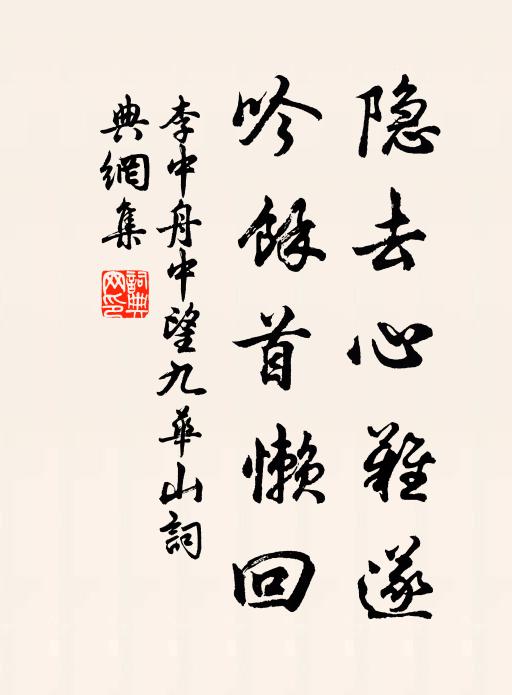 隐去心難遂
吟餘首懶回
李中舟中望九華山詞
典網集
詞典網印